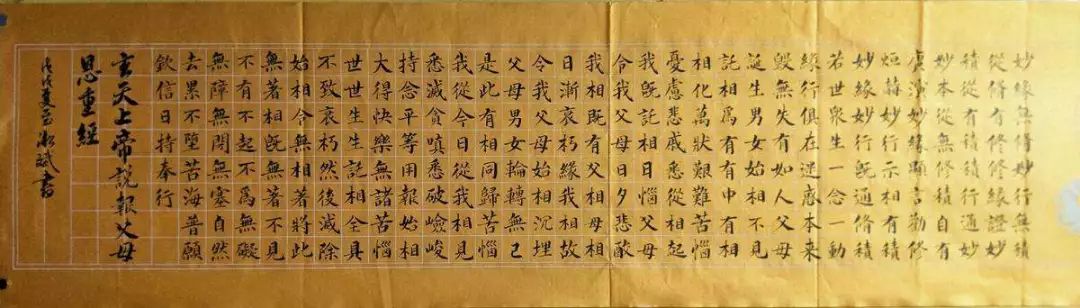 妙緣無修妙行無積
從修有修修緣證妙
積從有積積行通妙
妙本從無修積自有
廣演妙緣顯言勸修
烜赫妙行示相有積
妙緣妙行既通修積
若世眾生一念一動
緣行俱在逆惪本來
毀無失有如人父母
誕生男女始相不見
託相為有有中有相
相化萬狀艱難苦惱
憂慮悲戚悉從相起
我既託相日惱父母
令我父母日夕悲酸
我相既有父相母相
日漸衰朽緣我相故
令我父母始相沉埋
父母男女輪轉無已
是此有相同歸苦惱
我從今日從我相見
悉滅貪嗔悉破嶮峻
持念平等用報始相
大得快樂無諸苦惱
世世生生託相全具
不致衰朽然後滅除
始相令無相著將此
無著相既無著不見
不有不起不為無礙
無障無閡無塞自然
去累不墮苦海普願
欽信日持奉行
玄天上帝說報父母
恩重經
戊戌夏呂淞斌書